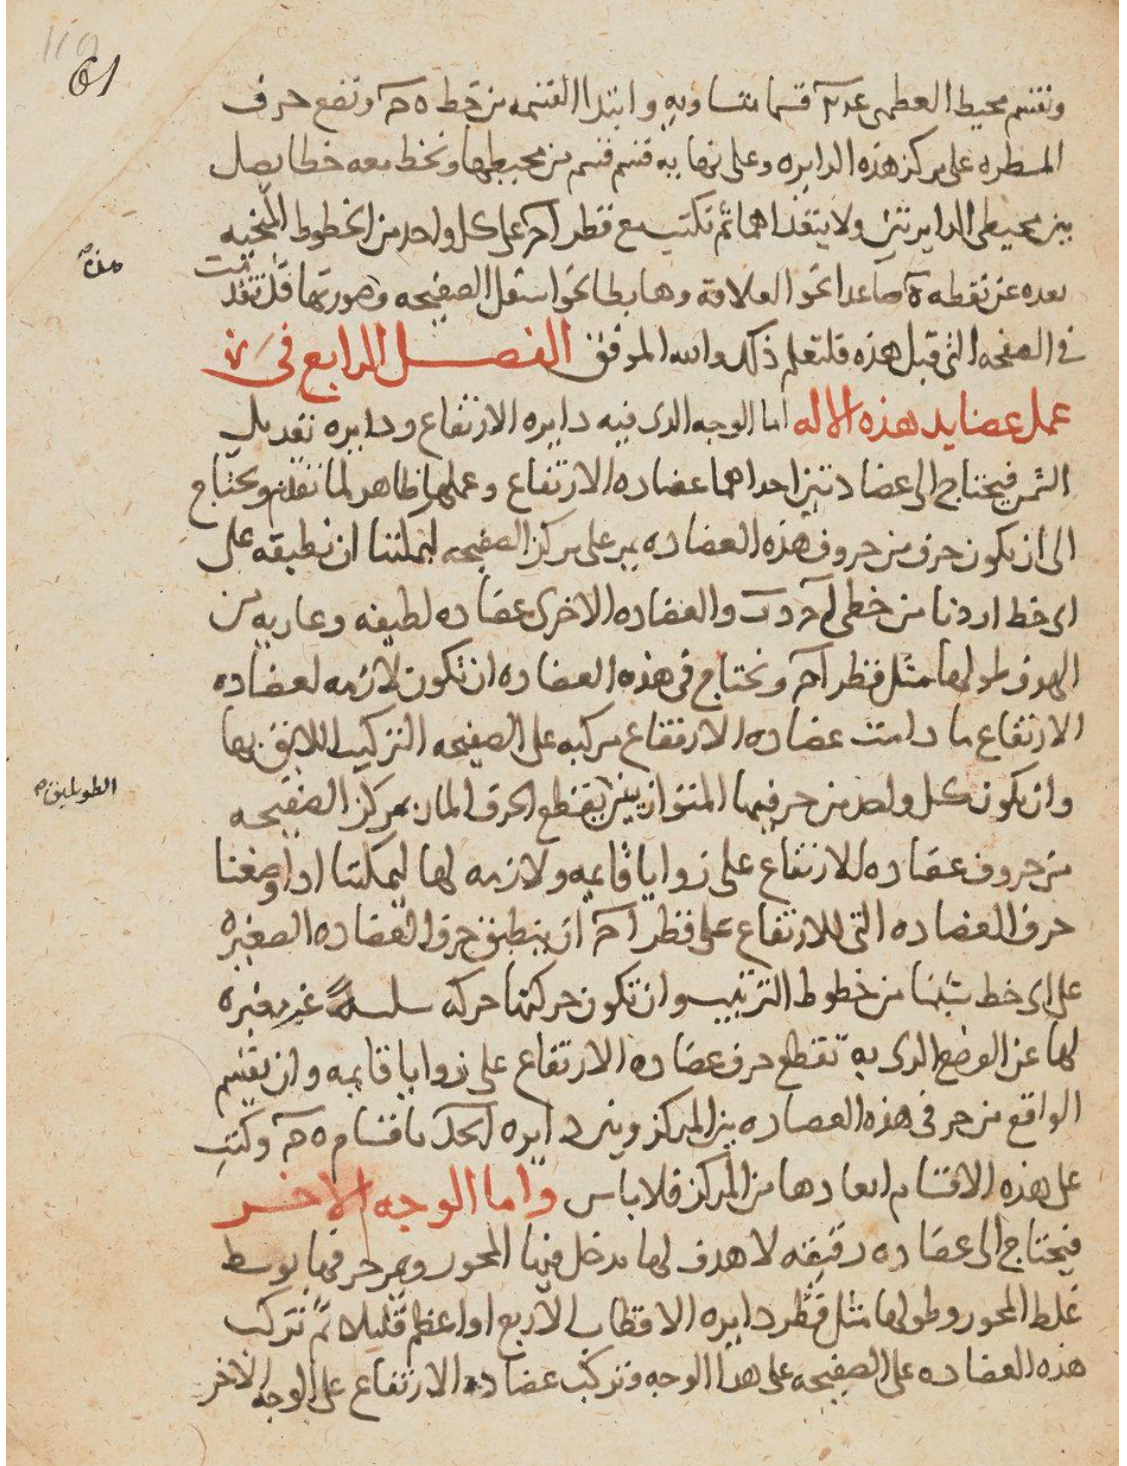 ونقسم محيط العظمى ٣٤ قسما متساويه وابتدا القسمه من خط ه حـ ونضع حرف
المسطره على مركز هذه الدايره وعلى نهايه قسم قسم من محيطها ونخط معه خطا يصل
بين محيطى الدايرتين ولا يتعداهما ثم نكتب مع قطر ا حـ على كل واحد من الخطوط المنحنيه
بعده عن نقطه ه صاعدا نحو العلاقه وهابطا نحو اسفل الصفيحه وصورتها قد تقدمت
فى الصفحه التى قبل هذه فلتعلم ذلك والله الموفق الفصل الرابع فى
عمل عضايد هذه الاله اما الوجه الذى فيه دايره الارتفاع ودايره تعديل
الشمس فيحتاج الى عضادتين احداهما عضاده الارتفاع وعملها ظاهر لما تقدم ويحتاج
الى ان يكون حرف من حروف هذه العضاده يمر على مركز الصفيحه ليمكننا ان نطبقه على
اى خط اردنا من خطى ا حـ و ب والعضاده الاخرى عضاده لطيفه وعاريه من
الهدف طولها مثل قطر ا حـ ونحتاج فى هذه العضاده ان تكون لازمه لعضاده
الارتفاع ما دامت عضاده الارتفاع مركبه على الصفيحه التركيب اللايق بها
وان يكون كل واحد من حرفيها المتوازيين يقطع الحرف المار بمركز الصفيحه
الطويلين
من حروف عضاده الارتفاع على زوايا قايمه ولازمه لها ليمكننا اذا وضعنا
حرف العضاده التى للارتفاع على قطر ا حـ ان ينطبق حرف العضاده الصغيره
على اى خط شينا من خطوط الترتيب وان تكون حركتها حركه سلسه غير مغيره
لها عن الوضع الذى به تقطع حرف عضاده الارتفاع على زوايا قايمه وان يقسم
الواقع من حرفى هذه العضاده بين المركز وبين دايره ابحد باقسام ه حـ وكتب
على هذه الاقسام ابعادها من المركز فلا باس واما الوجه الاخر
فيحتاج الى عضاده رقيقه لا هدف لها يدخل فيها المحور ويمر حرفها بوسط
غلظ المحور وطولها مثل قطر دايره الاقطاب الاربع او اعظم قليلا ثم نركب
هذه العضاده على الصفيحه على هذا الوجه ونركب عضاده الارتفاع على الوجه الاخر